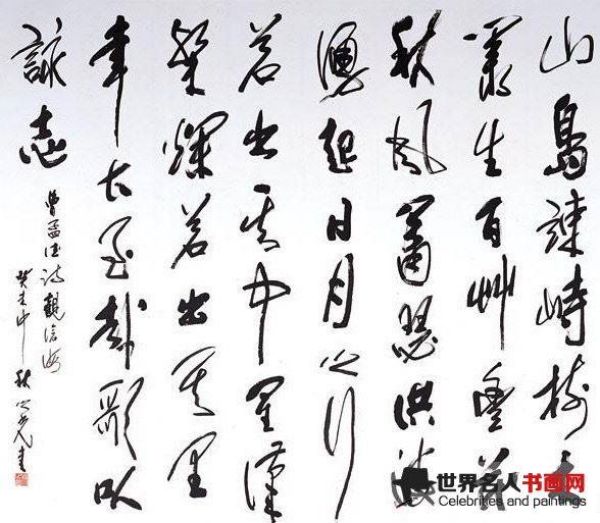 山島竦峙樹木
叢生百艸豐茂
秋風蕭瑟洪波
湧起日月之行
若出其中星漢
粲爛若出其里
幸甚至哉歌以
詠志
曹孟德詩觀滄海
癸未中秋書
世界名人书画网
Celebrities and paintings